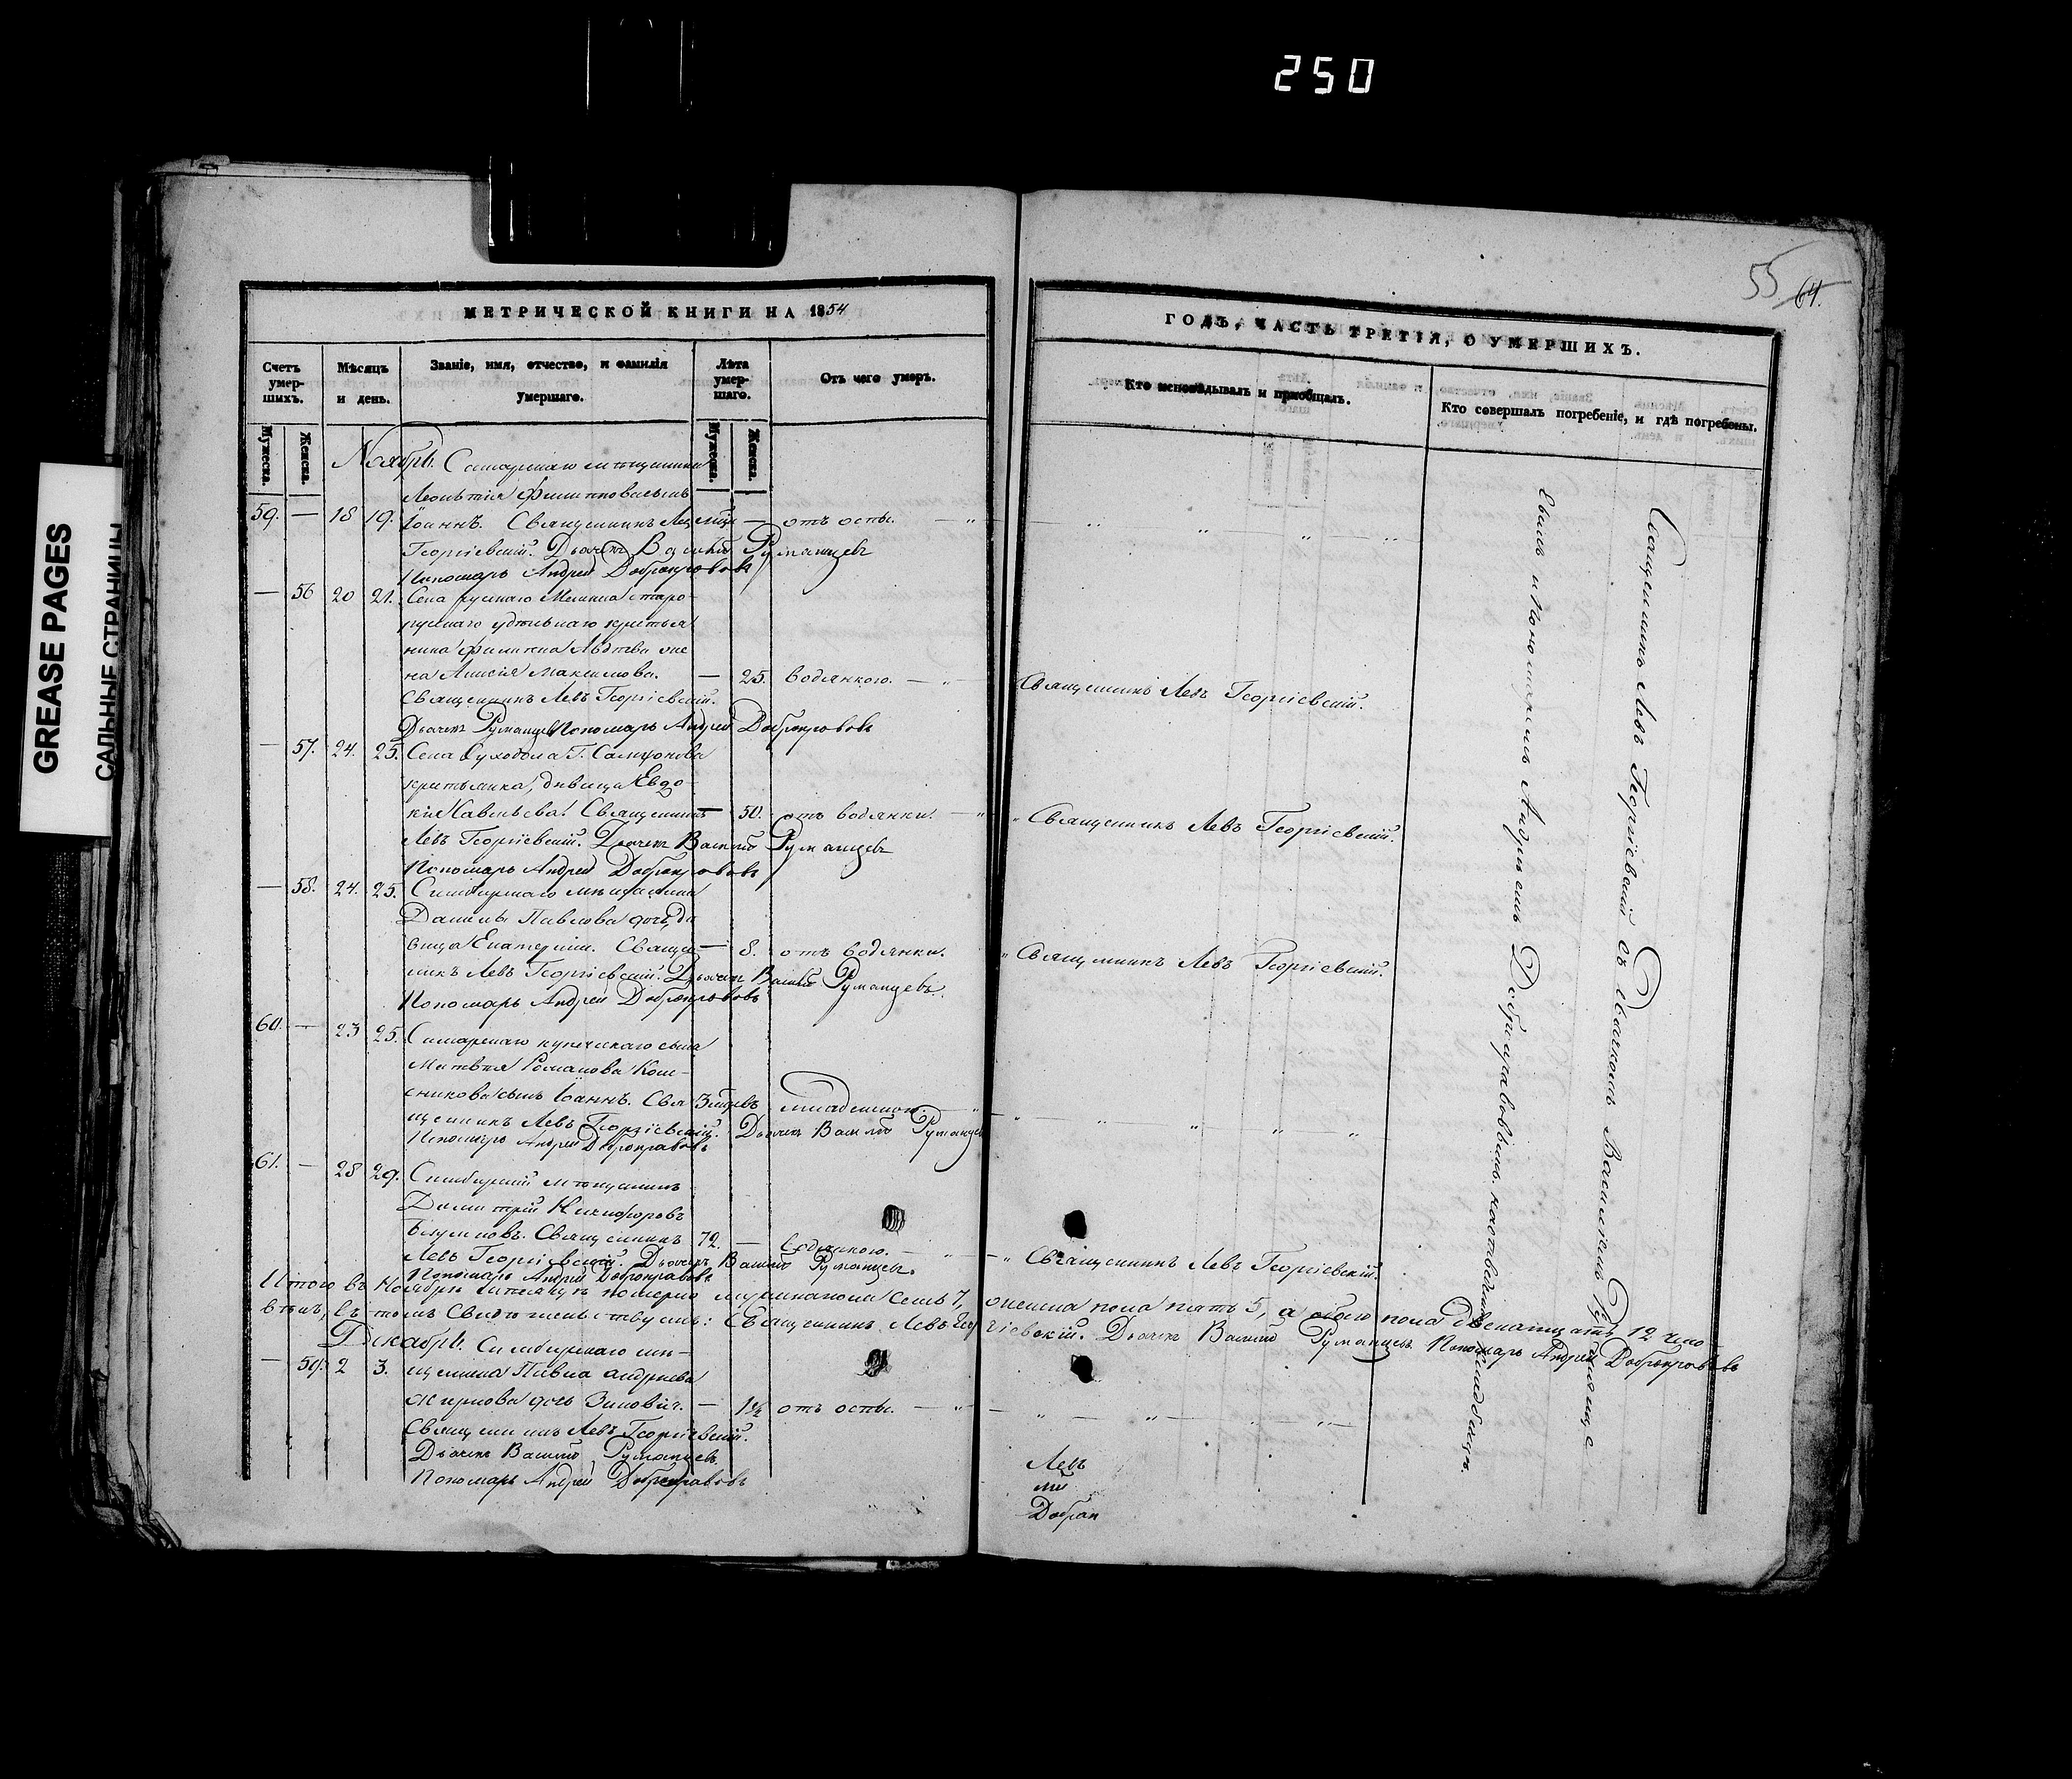 250
GREASE PAGES
САЛЬНЫЕ СТРАНИЦЫ
55 64.
МЕТРИЧЕСКОЙ КНИГИ НА 1854
ГОДЪ, ЧАСТЬ ТРЕТІЯ, О УМЕРШИХЪ.
Счетъ умер-шихъ.
Мѣсяцъ и день.
Званіе, имя, отчество, и фамилія умершаго.
Лѣта умер-шаго.
Отъ чего умеръ.
Кто исповѣдывалъ и пріобщалъ.
Кто совершалъ погребеніе, и гдѣ погребены.
Мужеска. Женска.
Мужеска. Женска.
Ноябрь. Самарскаго мѣщанина
Леонтія Филиппова сынъ
59. — 18 19. Іоаннъ. Священникъ Левъ — отъ оспы.
Георгіевскій. Дьячекъ Василій Румянцевъ
Пономарь Андрей Добронравовъ
— 56 20 21. Села
удѣльнаго крестья
нина Филиппа
на Анисія Максимова. — 25. водянкою. Священникъ Левъ Георгіевскій.
Священникъ Левъ Георгіевскій.
Дьячекъ Румянцевъ Пономарь Андрей Добронравовъ
— 57. 24. 25. Села Суходола Г. Самсонова
крестьянка, дѣвица Евдо-
кія Савельева. Священникъ — 50. отъ водянки. Священникъ Левъ Георгіевскій.
Левъ Георгіевскій. Дьячекъ Василій Румянцевъ
Пономарь Андрей Добронравовъ
— 58. 24. 25. Симбирскаго мѣщанина
Данилы Павлова дочь, дѣ
вица Екатерина. Священ — 8. отъ водянки. Священникъ Левъ Георгіевскій.
никъ Левъ Георгіевскій. Дьячекъ Василій Румянцевъ.
Пономарь Андрей Добронравовъ
60. — 23 25. Самарскаго купеческаго сына
Матвѣя Романова
сынъ Іоаннъ. Свя младенческою.
щенникъ Левъ Георгіевскій. Дьячекъ Василій Румянцевъ
Пономарь Андрей Добронравовъ
61. — 28 29. Симбирскій мѣщанинъ
Димитрій Никифоровъ
Священникъ 72. — водянкою. Священникъ Левъ Георгіевскій.
Левъ Георгіевскій. Дьячекъ Василій Румянцевъ.
Пономарь Андрей Добронравовъ
Итого въ Ноябрѣ померло мужеска пола семь 7, женска пола пять 5, а обоего пола двенатцать 12 чело
вѣкъ, въ томъ свидѣтельствуемъ: Священникъ Левъ Георгіевскій. Дьячекъ Василій Румянцевъ Пономарь Андрей Добронравовъ
Декабрь. Симбирскаго мѣ-
— 59. 2 3. щанина Павла Андреева
дочь Зиновія. — 1½ отъ оспы.
Священникъ Левъ Георгіевскій.
Дьячекъ Василій Румянцевъ
Пономарь Андрей Добронравовъ
Левъ
лій
Доброн
Священникъ Левъ Георгіевскій съ Дьячкомъ Василіемъ Румянце
вымъ и Пономаремъ Андреемъ Добронравовымъ на отведенномъ кладбищѣ.